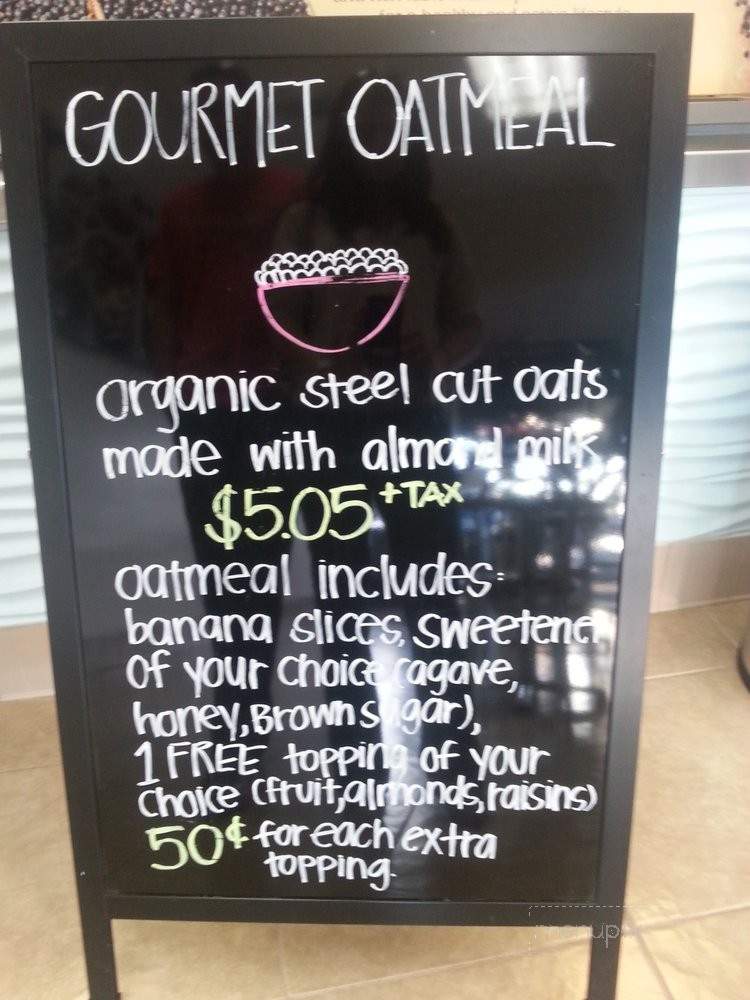 GOURMET OATMEAL
organic steel cut oats
made with almond milk
$5.05 + TAX
oatmeal includes:
banana slices, sweetener
of your choice (agave,
honey, Brown sugar),
1 FREE topping of your
choice (fruit, almonds, raisins)
50¢ for each extra
topping.